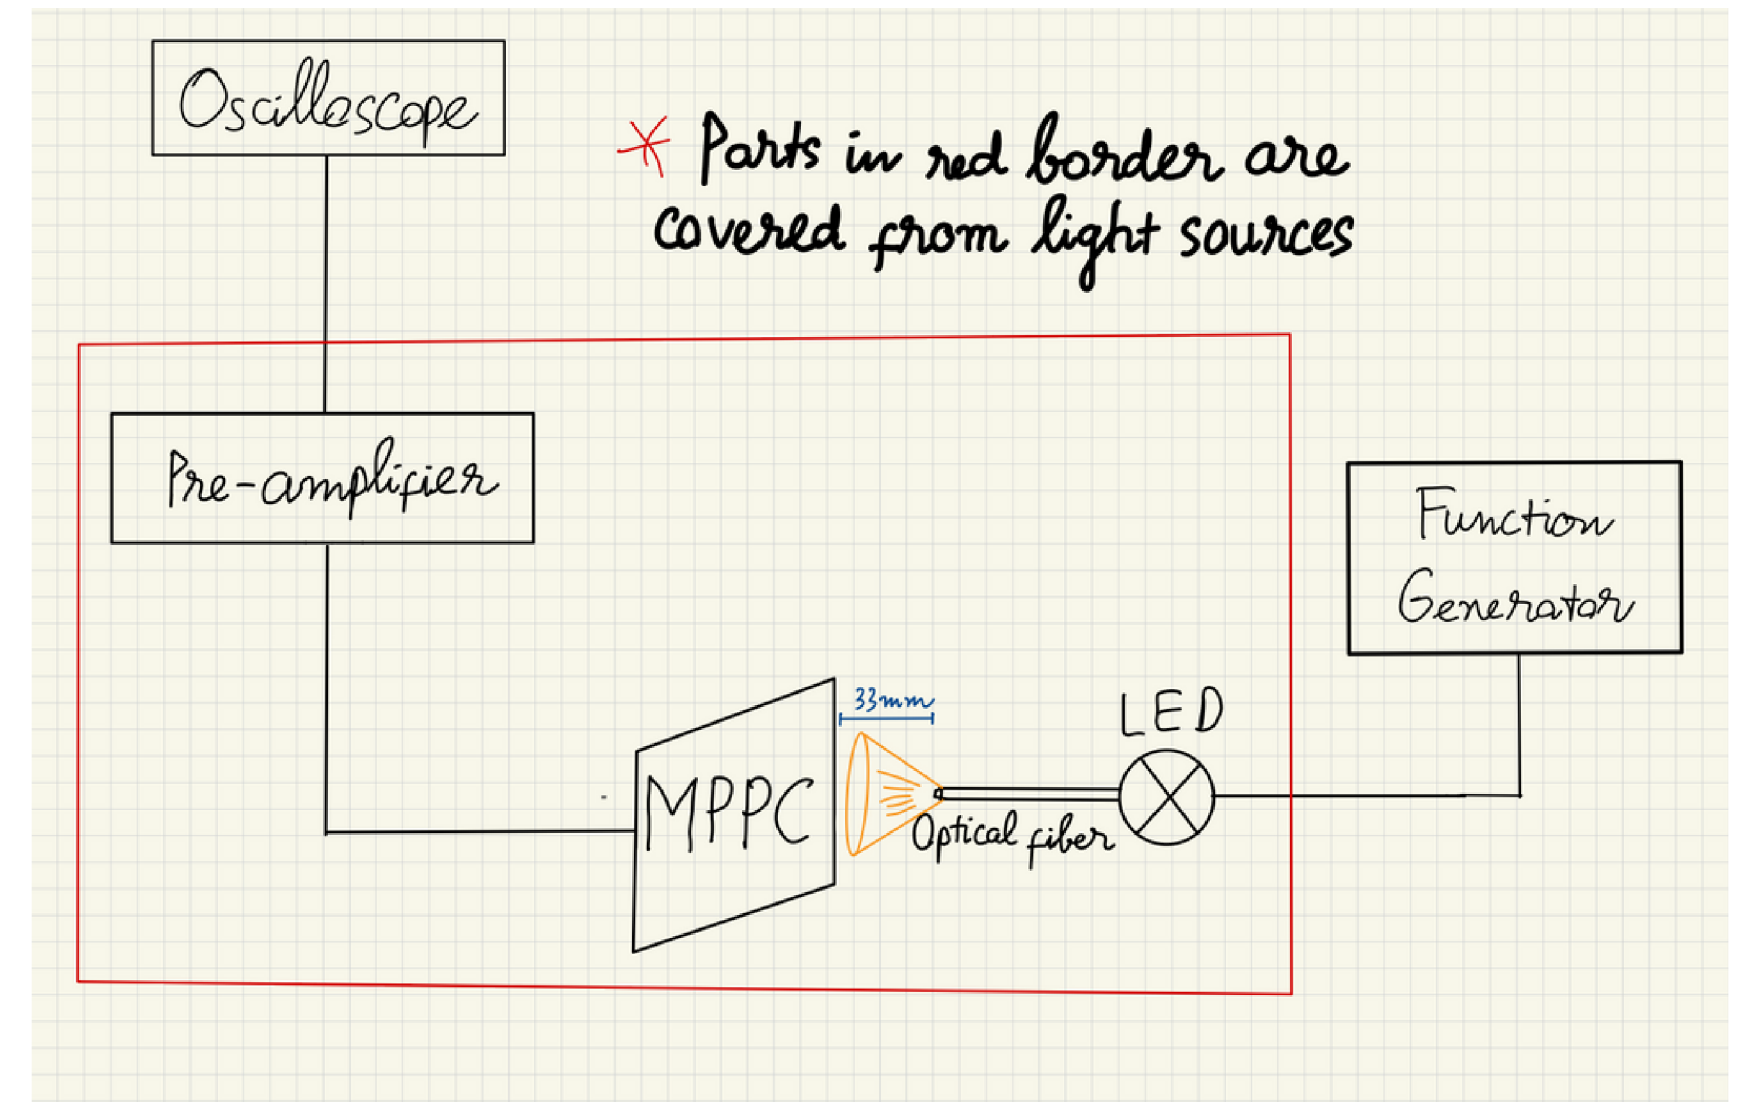 Oscilloscope
* Parts in red border are
covered from light sources
Pre-amplifier
Function
Generator
33mm
LED
MPPC
Optical fiber